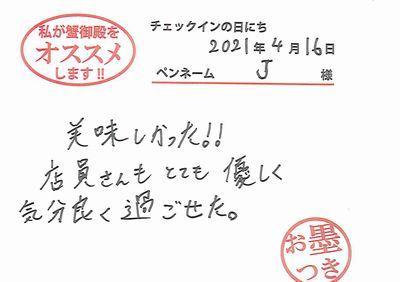 私が蟹御殿を
オススメ
します!!
チェックインの日にち
2021年4月16日
ペンネーム J 様
美味しかった!!
店員さんも とても 優しく
気分良く過ごせた。
お墨
つき